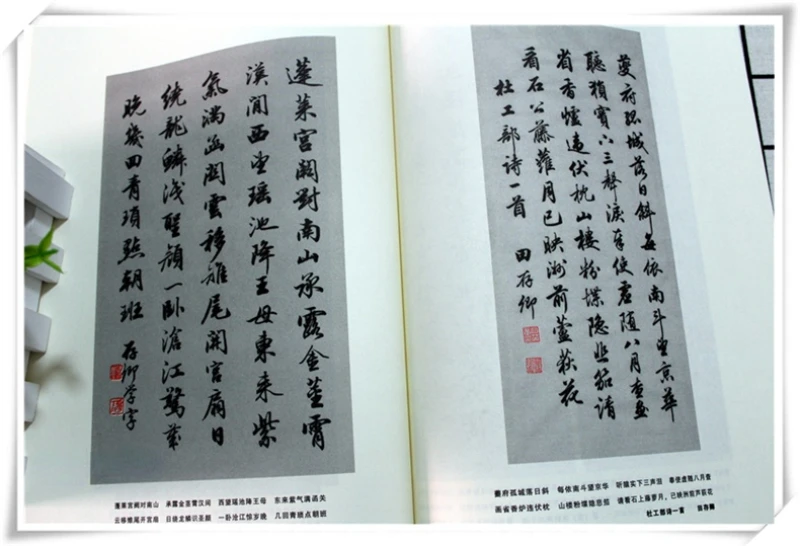 蓬萊宮闕對南山承露金莖霄
漢間西望瑶池降王母東来紫
氣滿函關雲移雉尾開宮扇日
繞龍鱗識聖顔一卧滄江驚歲
晚幾回青瑣點朝班 存卿学字
蓬莱宫阙对南山 承露金茎霄汉间 西望瑶池降王母 东来紫气满函关
云移雉尾开宫扇 日绕龙鳞识圣颜 一卧沧江惊岁晚 几回青琐点朝班
夔府孤城落日斜每依南斗望京華
聽猿實下三聲淚奉使虛隨八月查畫
省香爐違伏枕山樓粉堞隱悲笳請
看石上藤蘿月已映洲前蘆荻花
杜工部诗一首 田存卿
夔府孤城落日斜 每依南斗望京华 听猿实下三声泪 奉使虚随八月查
画省香炉违伏枕 山楼粉堞隐悲笳 请看石上藤萝月，已映洲前芦荻花
杜工部诗一首 田存卿